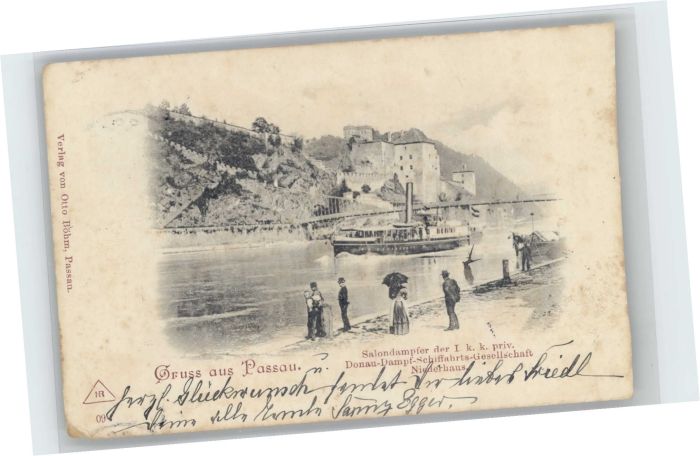 Verlag von Otto Böhm, Passau.
Gruss aus Passau.
Salondampfer der I. k. k. priv.
Donau-Dampf-Schiffahrts-Gesellschaft
Niederhaus
herzl. Glückwunsch u. sendet Dir liebes Friedl
Deine alte Tante Fanny Egger.